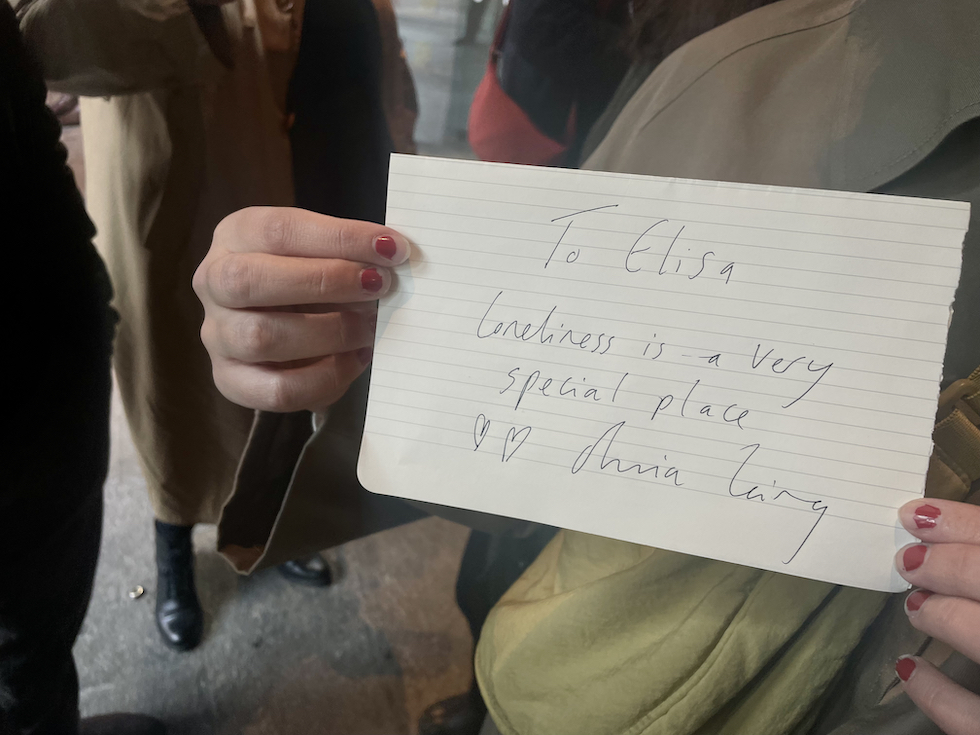 To Elisa
Loneliness is a very
special place
♡♡ Olivia Laing